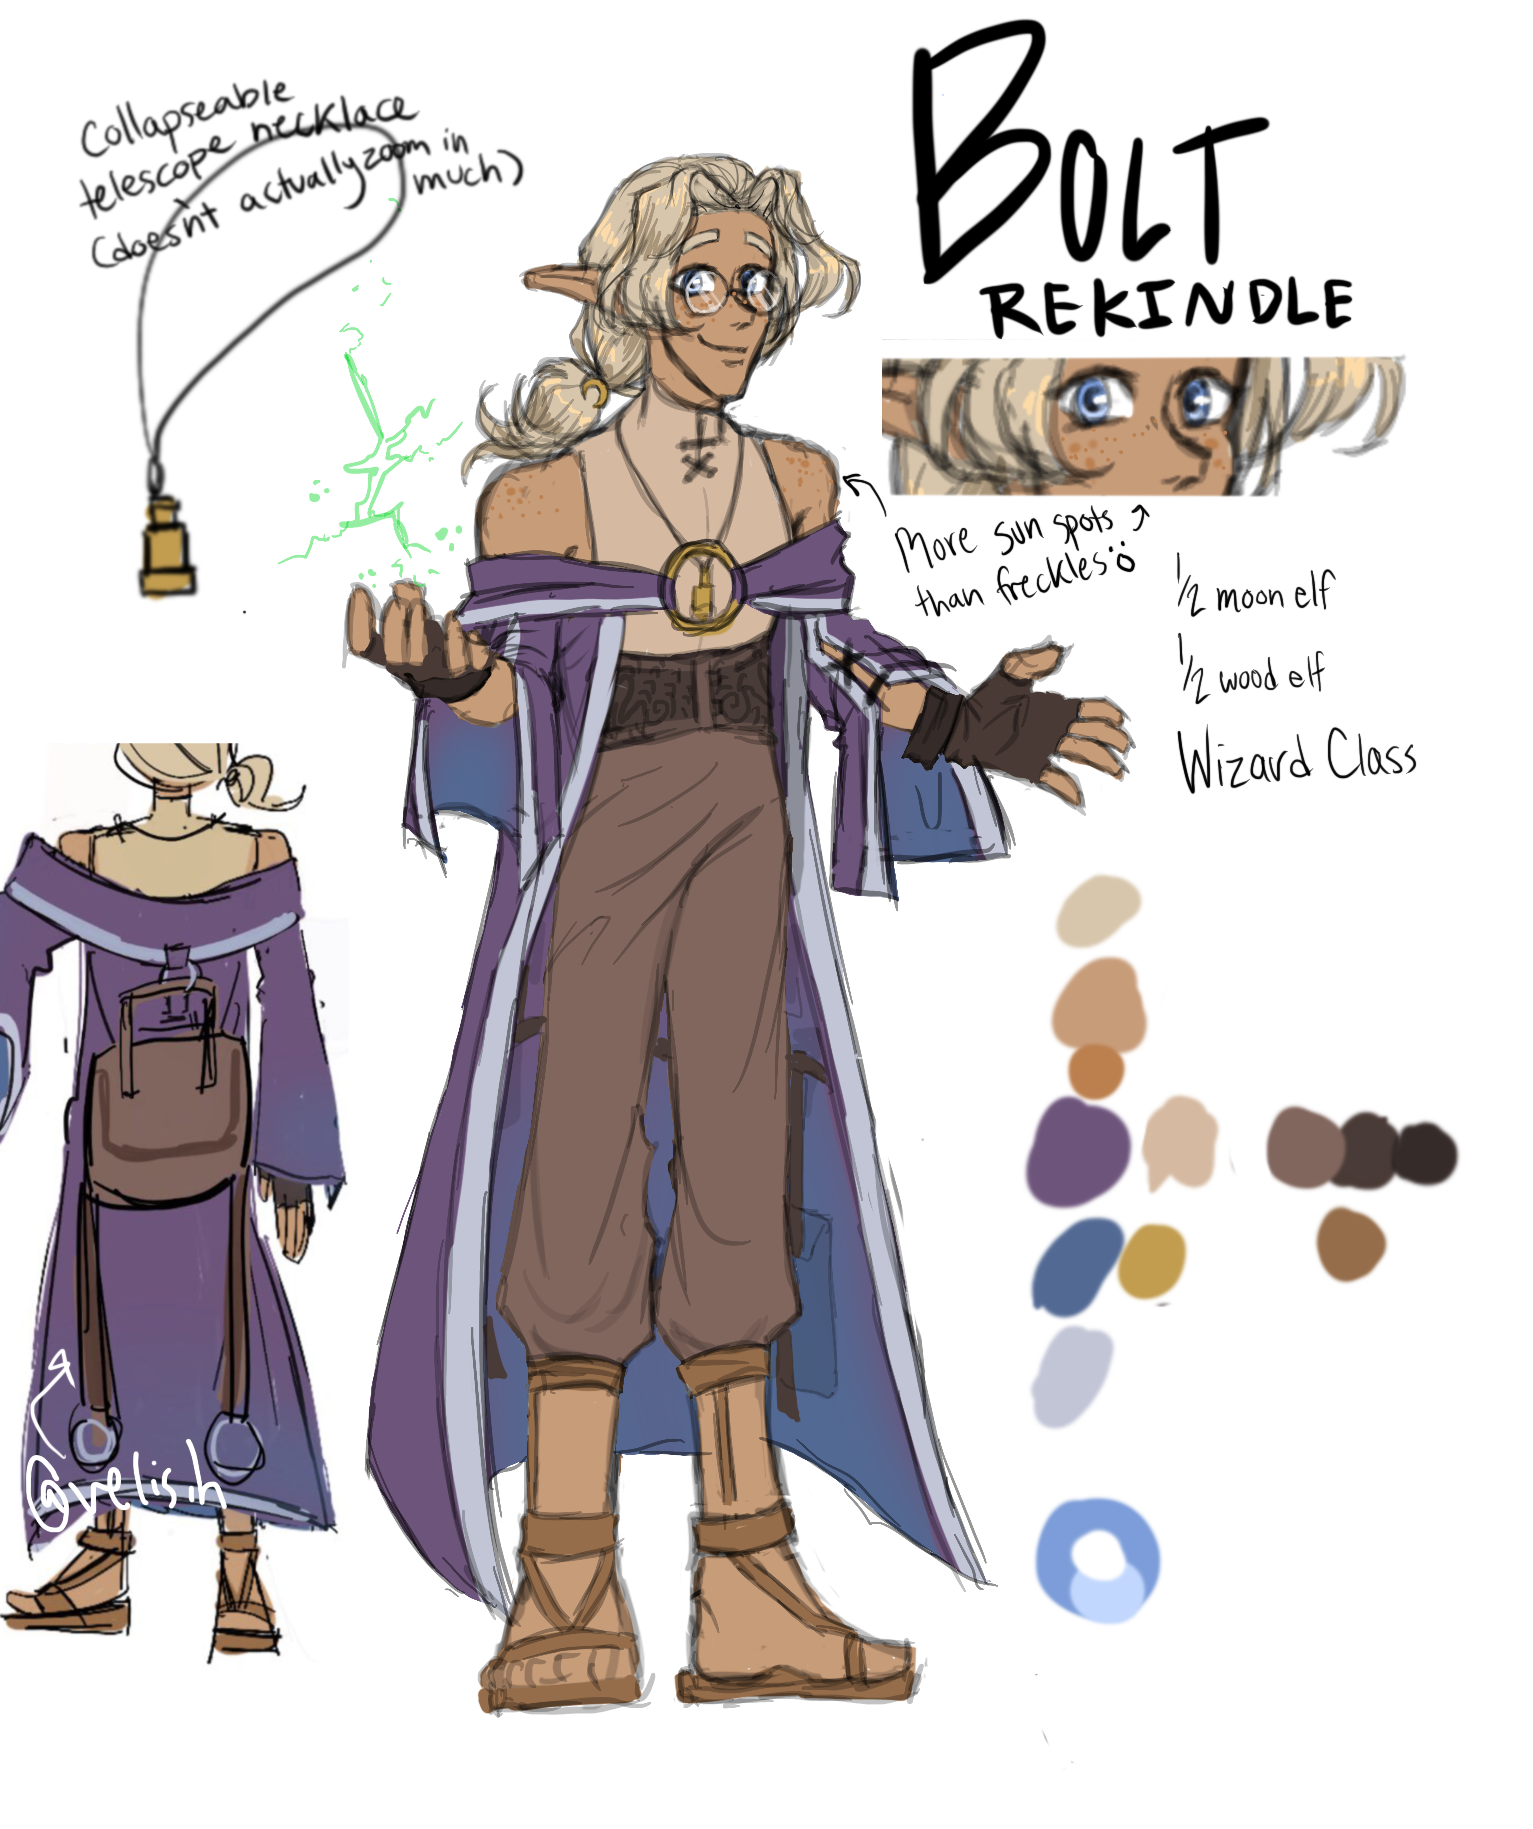 Collapseable
telescope necklace
(doesn't actually zoom in
much)
BOLT
REKINDLE
More sun spots
than freckles
1/2 moon elf
1/2 wood elf
Wizard Class
@velis.h